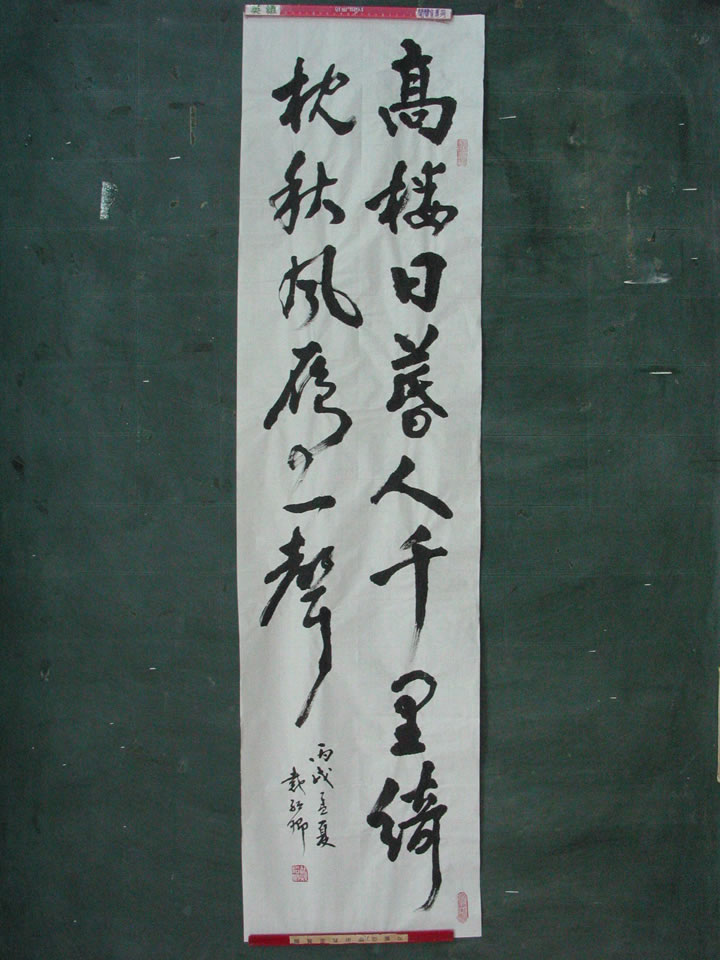 高樓日暮人千里綺
枕秋風雁一聲
丙戌孟夏